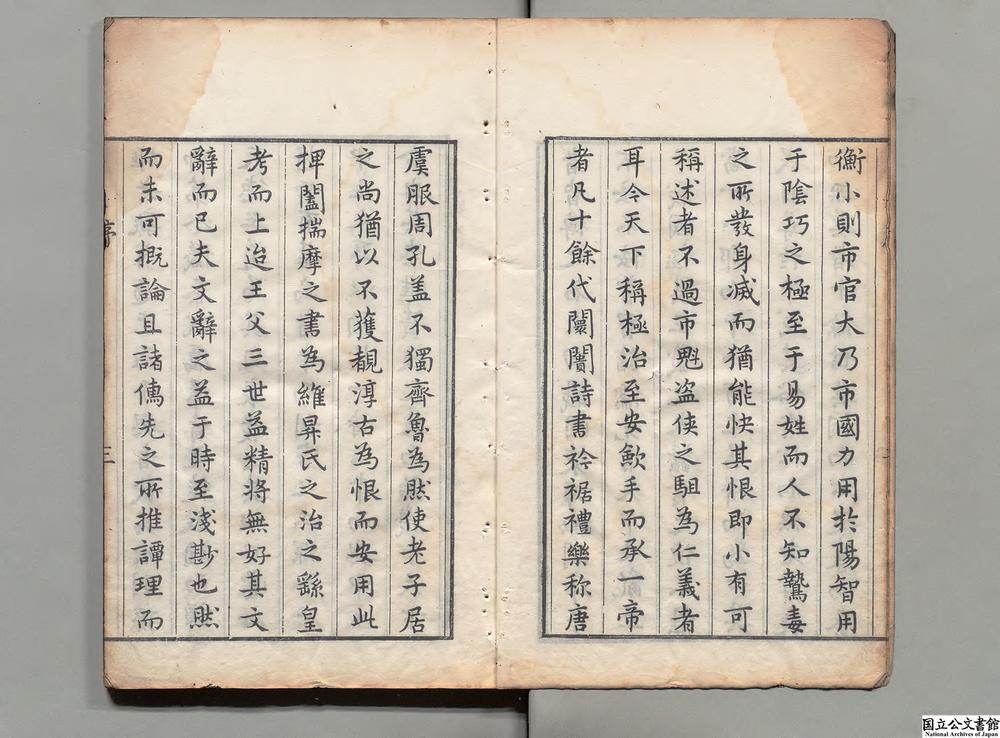 衡小則市官大乃市國力用扵陽智用
于陰巧之極至于易姓而人不知鷙毒
之所發身滅而猶能快其恨即小有可
稱述者不過市魁盗俠之駔為仁義者
耳今天下稱極治至安歛手而承一帝
者凡十餘代闤闠詩書衿裾禮樂称唐
虞服周孔盖不獨齊魯為然使老子居
之尚猶以不蒦覩淳古為恨而安用此
捭闔揣摩之書為維昇氏之治之繇皇
考而上迨王父三世益精将無好其文
辭而已夫文辭之益于時至淺尠也然
而未可概論且諸儁先之所推譚理而
序
三
国立公文書館
National Archives of Japan